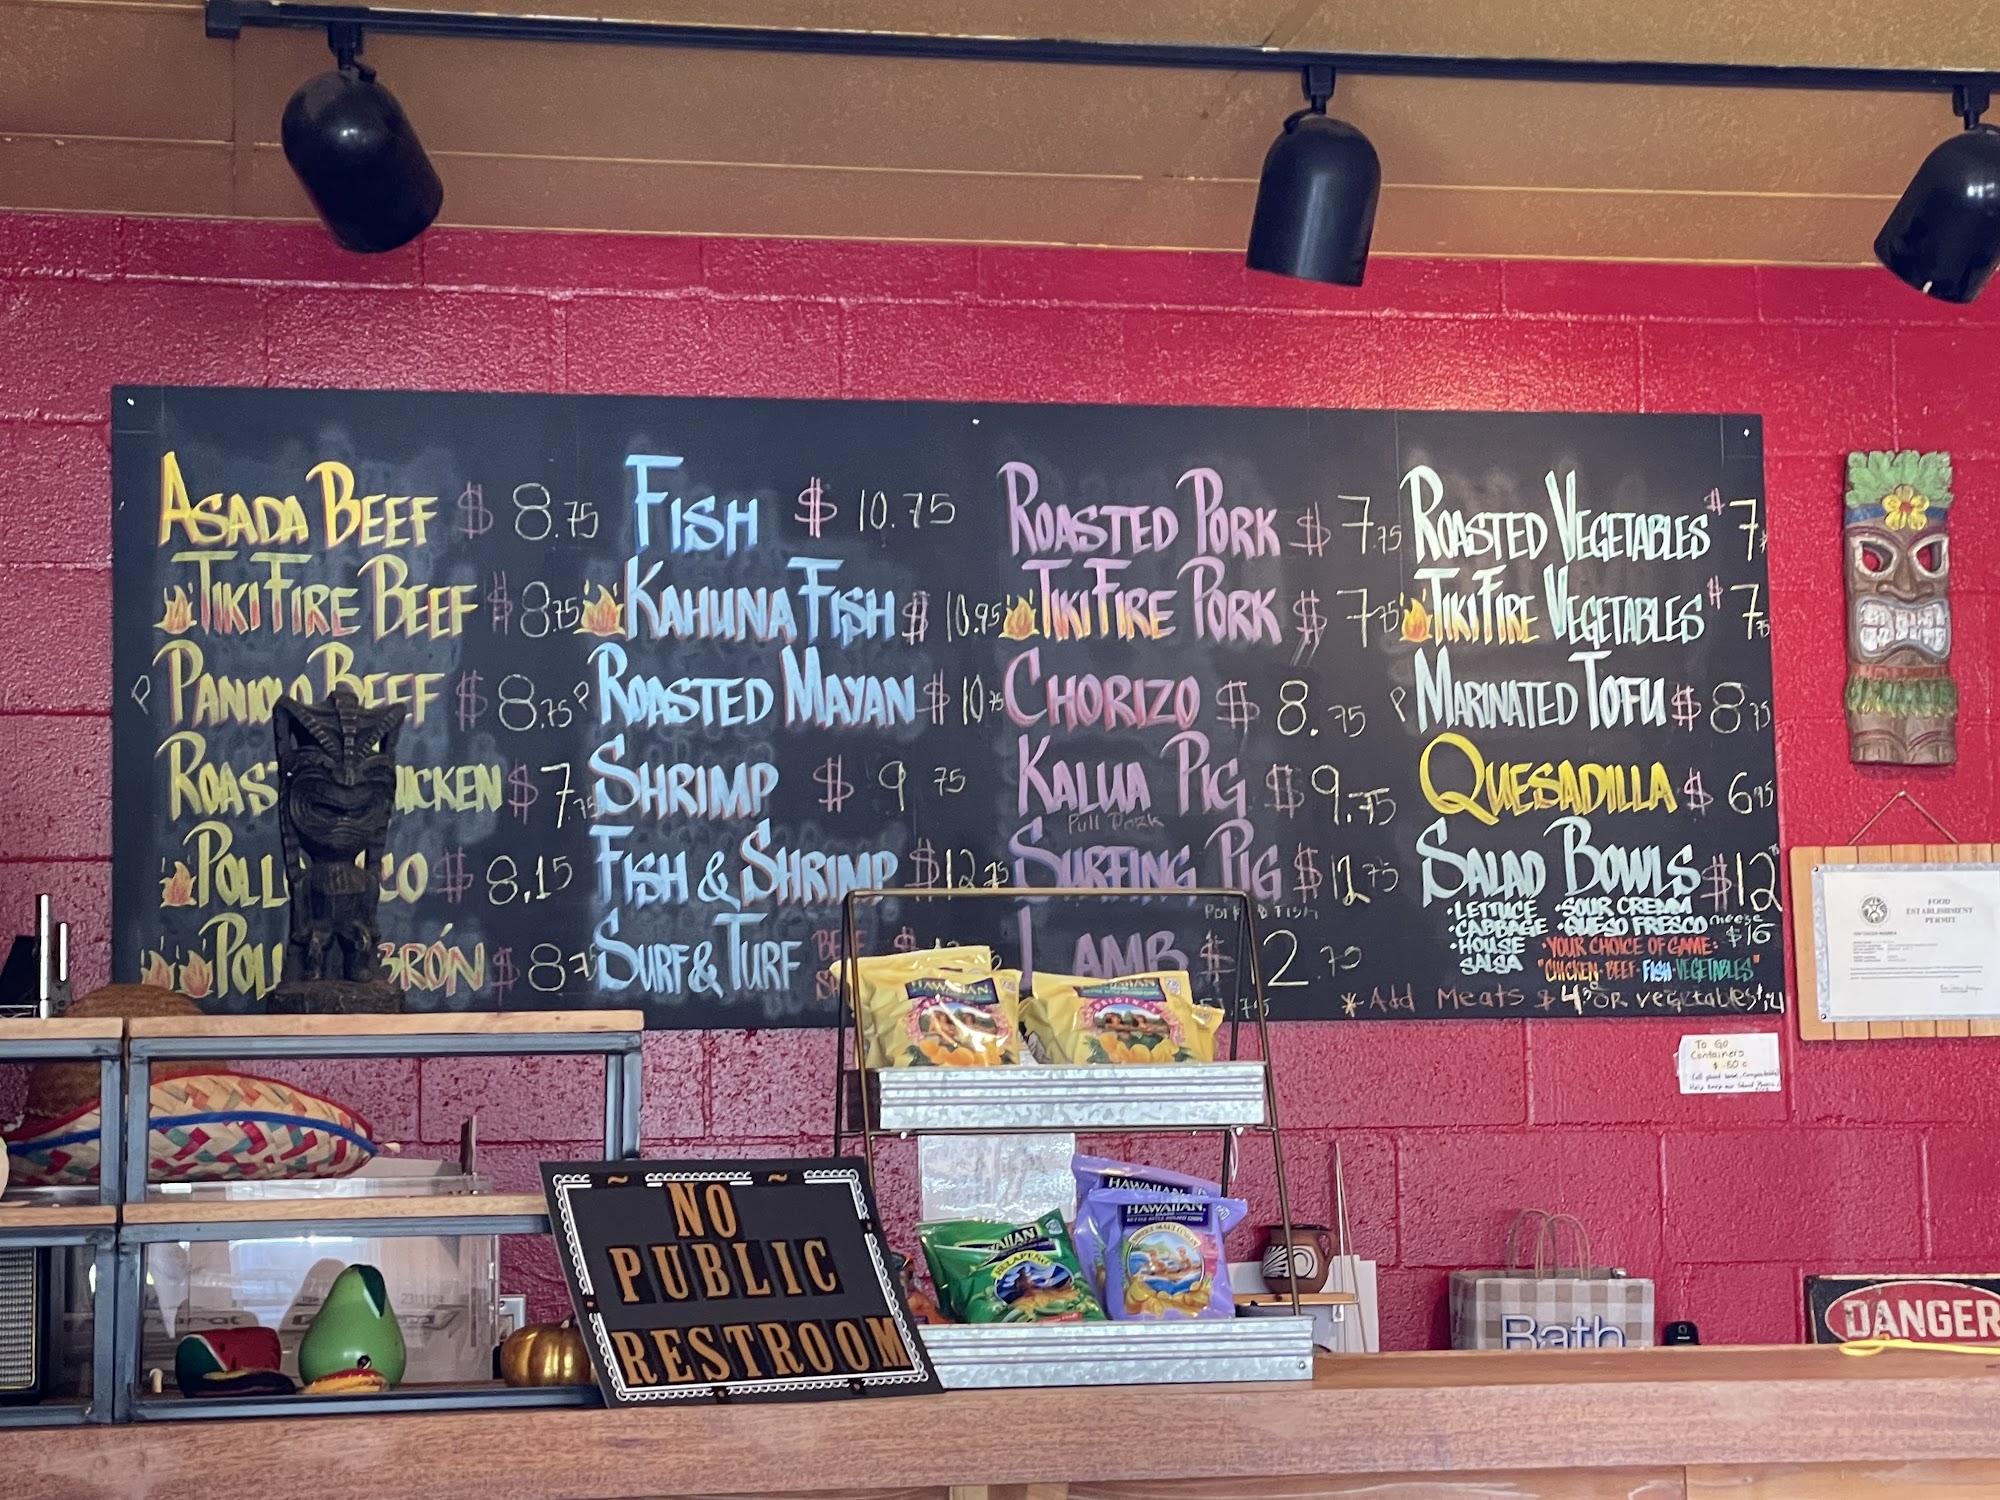 ASADA BEEF $ 8.75
TIKI FIRE BEEF $ 8.75
P PANIOLO BEEF $ 8.75
ROAS CHICKEN $ 7.75
POLL CO $ 8.15
POL BRÓN $ 8.75
FISH $ 10.75
KAHUNA FISH $ 10.95
P ROASTED MAYAN $ 10.75
SHRIMP $ 9 75
FISH & SHRIMP $12.75
SURF & TURF
ROASTED PORK $ 7.75
TIKI FIRE PORK $ 7.75
CHORIZO $ 8.75
KALUA PIG $ 9.75
Pull Pork
SURFING PIG $ 12.75
LAMB $ 2.75
ROASTED VEGETABLES $ 7
TIKI FIRE VEGETABLES $ 7.75
P MARINATED TOFU $ 8.75
QUESADILLA $ 6.95
SALAD BOWLS $12
• LETTUCE • SOUR CREAM
• CABBAGE • QUESO FRESCO
• HOUSE SALSA
$16
• YOUR CHOICE OF GAME:
"CHICKEN • BEEF • FISH • VEGETABLES"
* Add Meats $4 OR vegetables $4
FOOD
ESTABLISHMENT
PERMIT
To Go
Containers
$ .50 c
HAWAIIAN
HAWAIIAN
ORIGINAL
HAWAIIAN
HAWAIIAN
JALAPEÑO
HAWAIIAN
KETTLE STYLE POTATO CHIPS
~ NO ~
PUBLIC
RESTROOM
Bath
DANGER